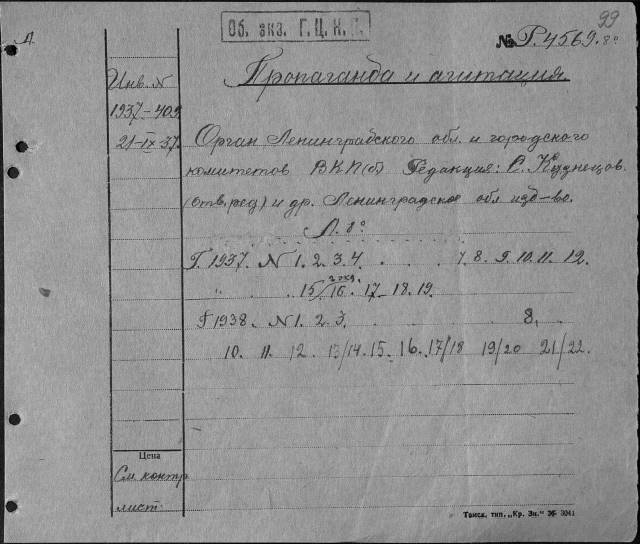 99
Об. экз. Г.Ц.К.П.
№ Р.4569. 8°
Л.
Инв. N
1937-409
21-IX-37.
Пропаганда и агитация
Орган Ленинградского обл. и городского
комитетов ВКП(б) Редакция: С. Кузнецов
(отв. ред) и др. Ленинградское обл изд-во.
Л. 8°
Г. 1937. N 1. 2. 3. 4. . . . 7. 8. 9. 10. 11. 12.
" . . 15/16. 17 - 18. 19.
Г 1938. N 1. 2. 3. . . . 8.
10. 11. 12. 13/14. 15. 16. 17/18 19/20 21/22.
Цена
См. контр
лист
Томск. тип. „Кр. Зн." № 3041